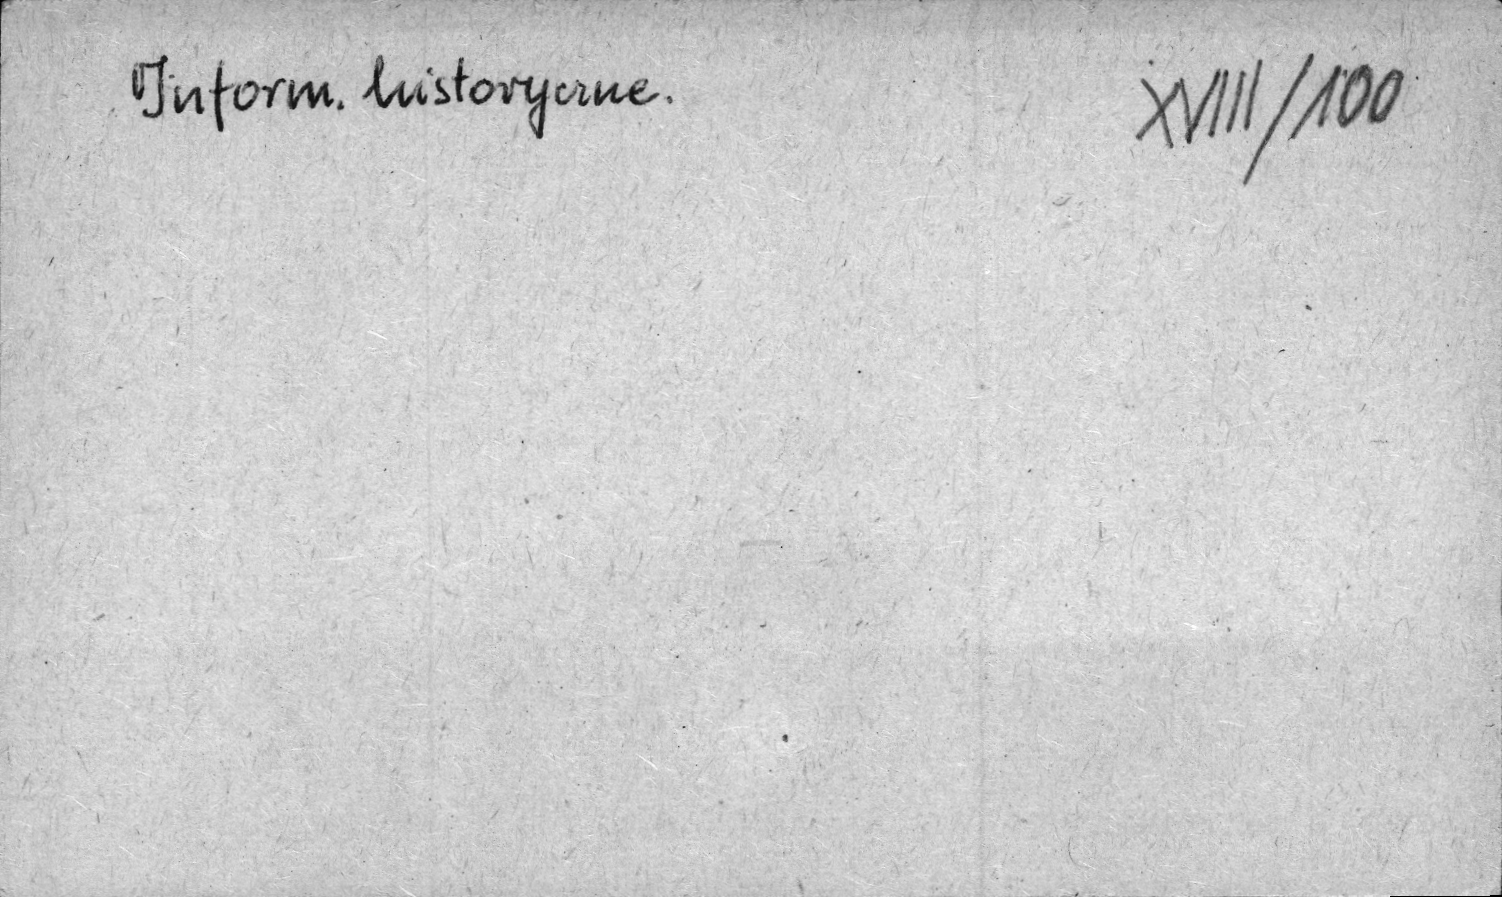 Inform. historyczne.
XVIII/100